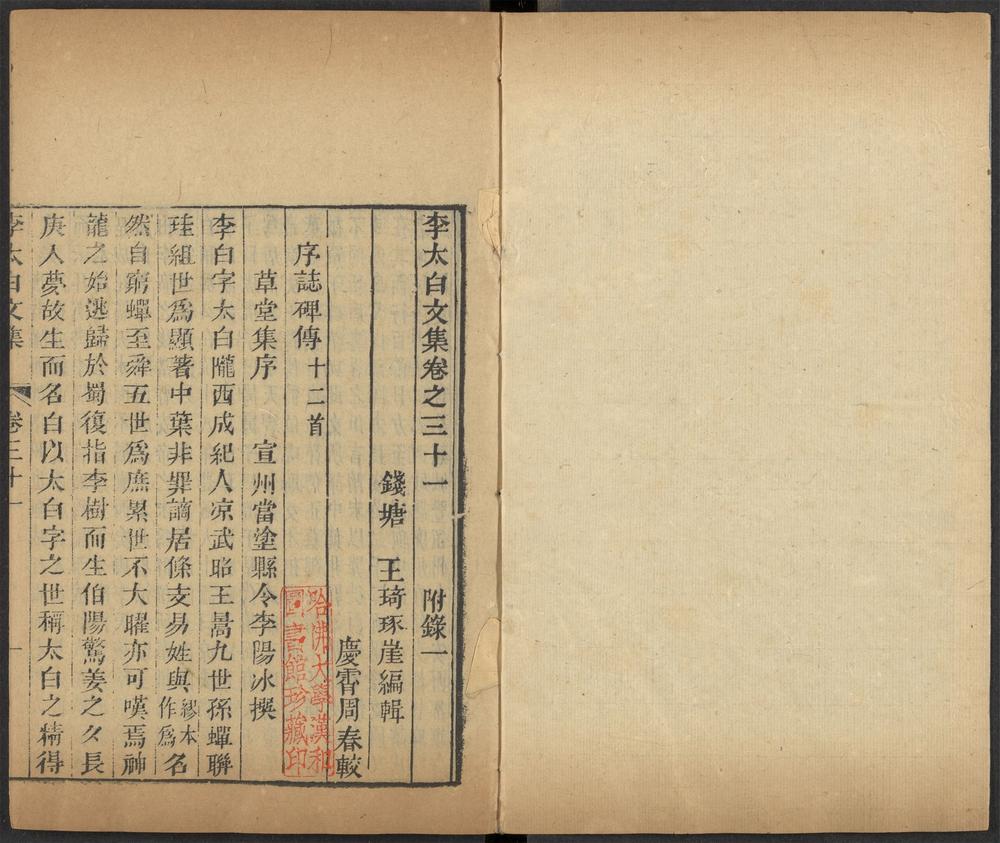 李太白文集卷之三十一　附錄一
錢塘　王琦琢崖編輯
慶霄周春較
序誌碑傳十二首
草堂集序　宣州當塗縣令李陽冰撰
李白字太白隴西成紀人凉武昭王暠九世孫蟬聯
珪組世爲顯著中葉非罪謫居條支易姓與繆本作爲名
然自窮蟬至舜五世爲庶累世不大曜亦可嘆焉神
龍之始逃歸於蜀復指李樹而生伯陽驚姜之夕長
庚入夢故生而名白以太白字之世稱太白之精得
李太白文集　卷三十一　一
哈佛大學漢和
圖書館珍藏印